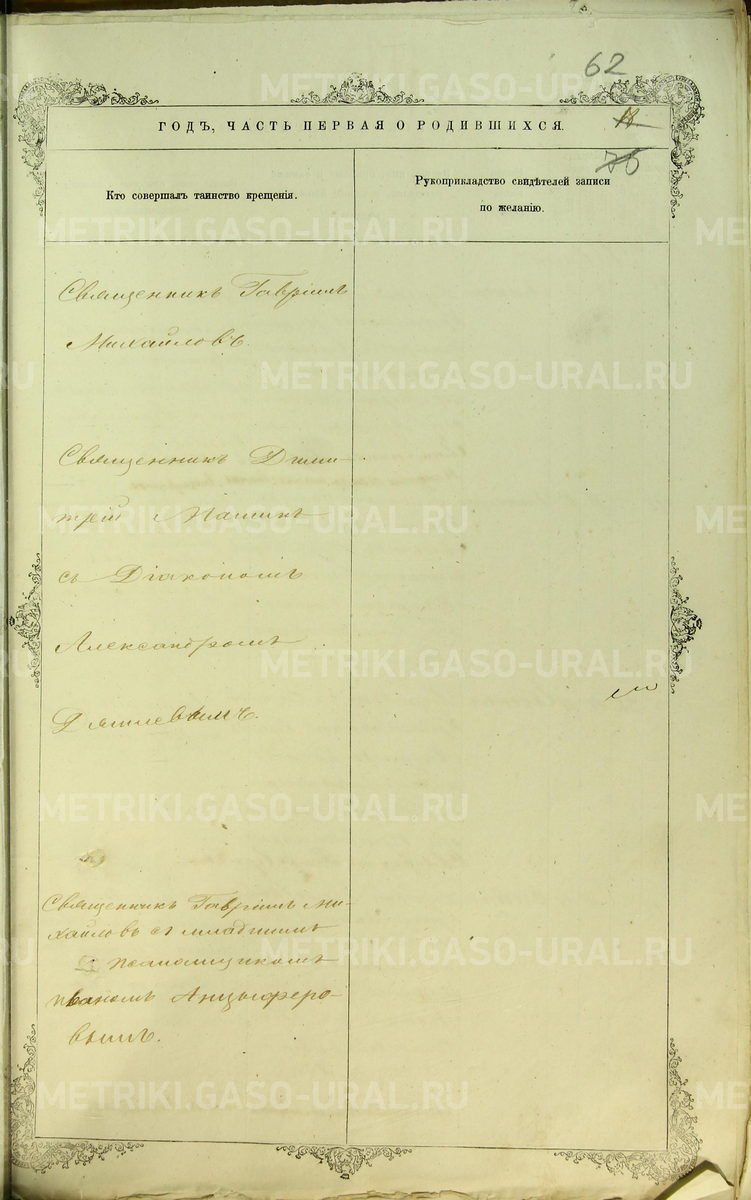 62
ГОДЪ, ЧАСТЬ ПЕРВАЯ О РОДИВШИХСЯ.
Кто совершалъ таинство крещенія.
Рукоприкладство свидѣтелей записи
по желанію.
Священникъ Гавріилъ
Михайловъ.
Священникъ Дими-
трій
съ Діакономъ
Александромъ
Священникъ Гавріилъ Ми-
хайловъ съ младшимъ
помощникомъ
Иваномъ Анцыферо-
вымъ.
METRIKI.GASO-URAL.RU